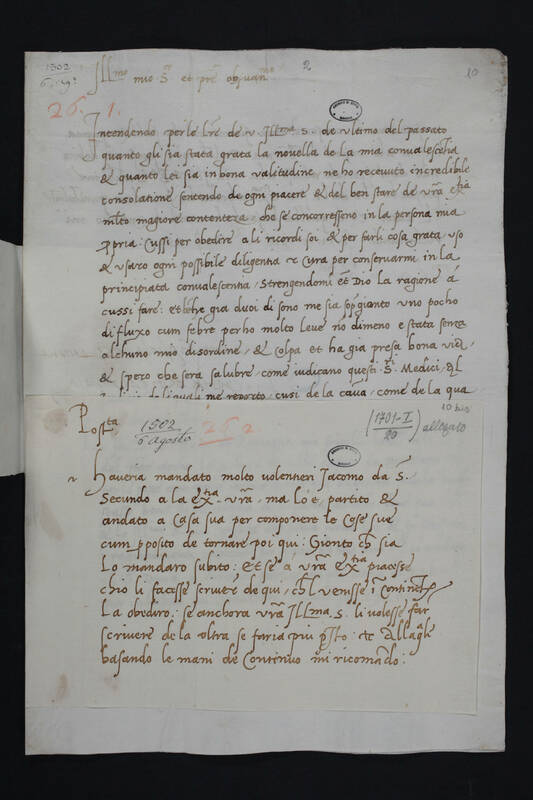 1502
6 Ag.
Ill.mo mio S. et pre obs.van.mo
2
10
26. 1.
Intendendo per le lre de v. Illma S. de ultimo del passato
quanto gli sia stata grata la novella de la mia convalescentia
& quanto lei sia in bona valitudine, ne ho recevuto incredibile
consolatione sentendo de ogni piacere & del ben stare de vra extia
mlto magiore contenteza, che se concorresseno in la persona mia
ppria: Cussi per obedire a li ricordi soi & per farli cosa grata uso
& usaro ogni possibile diligentia & cura per conservarmi in la
principiata convalescentia, Strengendomi et Dio la ragione á
cussi fare: et bche gia duoi di sono me sia sopgianto uno pocho
di fluxo cum febre per ho molto leve, nō dimeno e stata senza
alchuno mio disordine, & colpa et ha gia presa bona via,
& spero che sera salubre, come iudicano questi S. Medici,
me reporto, cusi de la cāva, come de la qua
Post.ta
1502
6 agosto
262
(1701-I
20)
allegato
10 bis
Haveria mandato molto volentieri Jacomo da S.
Secundo a la extia vrā, ma lo è partito &
andato a Casa sua per componere le Cose sue
cum pposito de tornare poi qui: Gionto ch sia
Lo mandaro subito: et se á vrā extia piacesse
chio li facesse scrivere de qui, chl venesse
La obediro: se anchora vrā Illma. S. li volesse far
scrivere de la oltra se faria piu psto:
basando le mani de Continuo mi ricomādo: